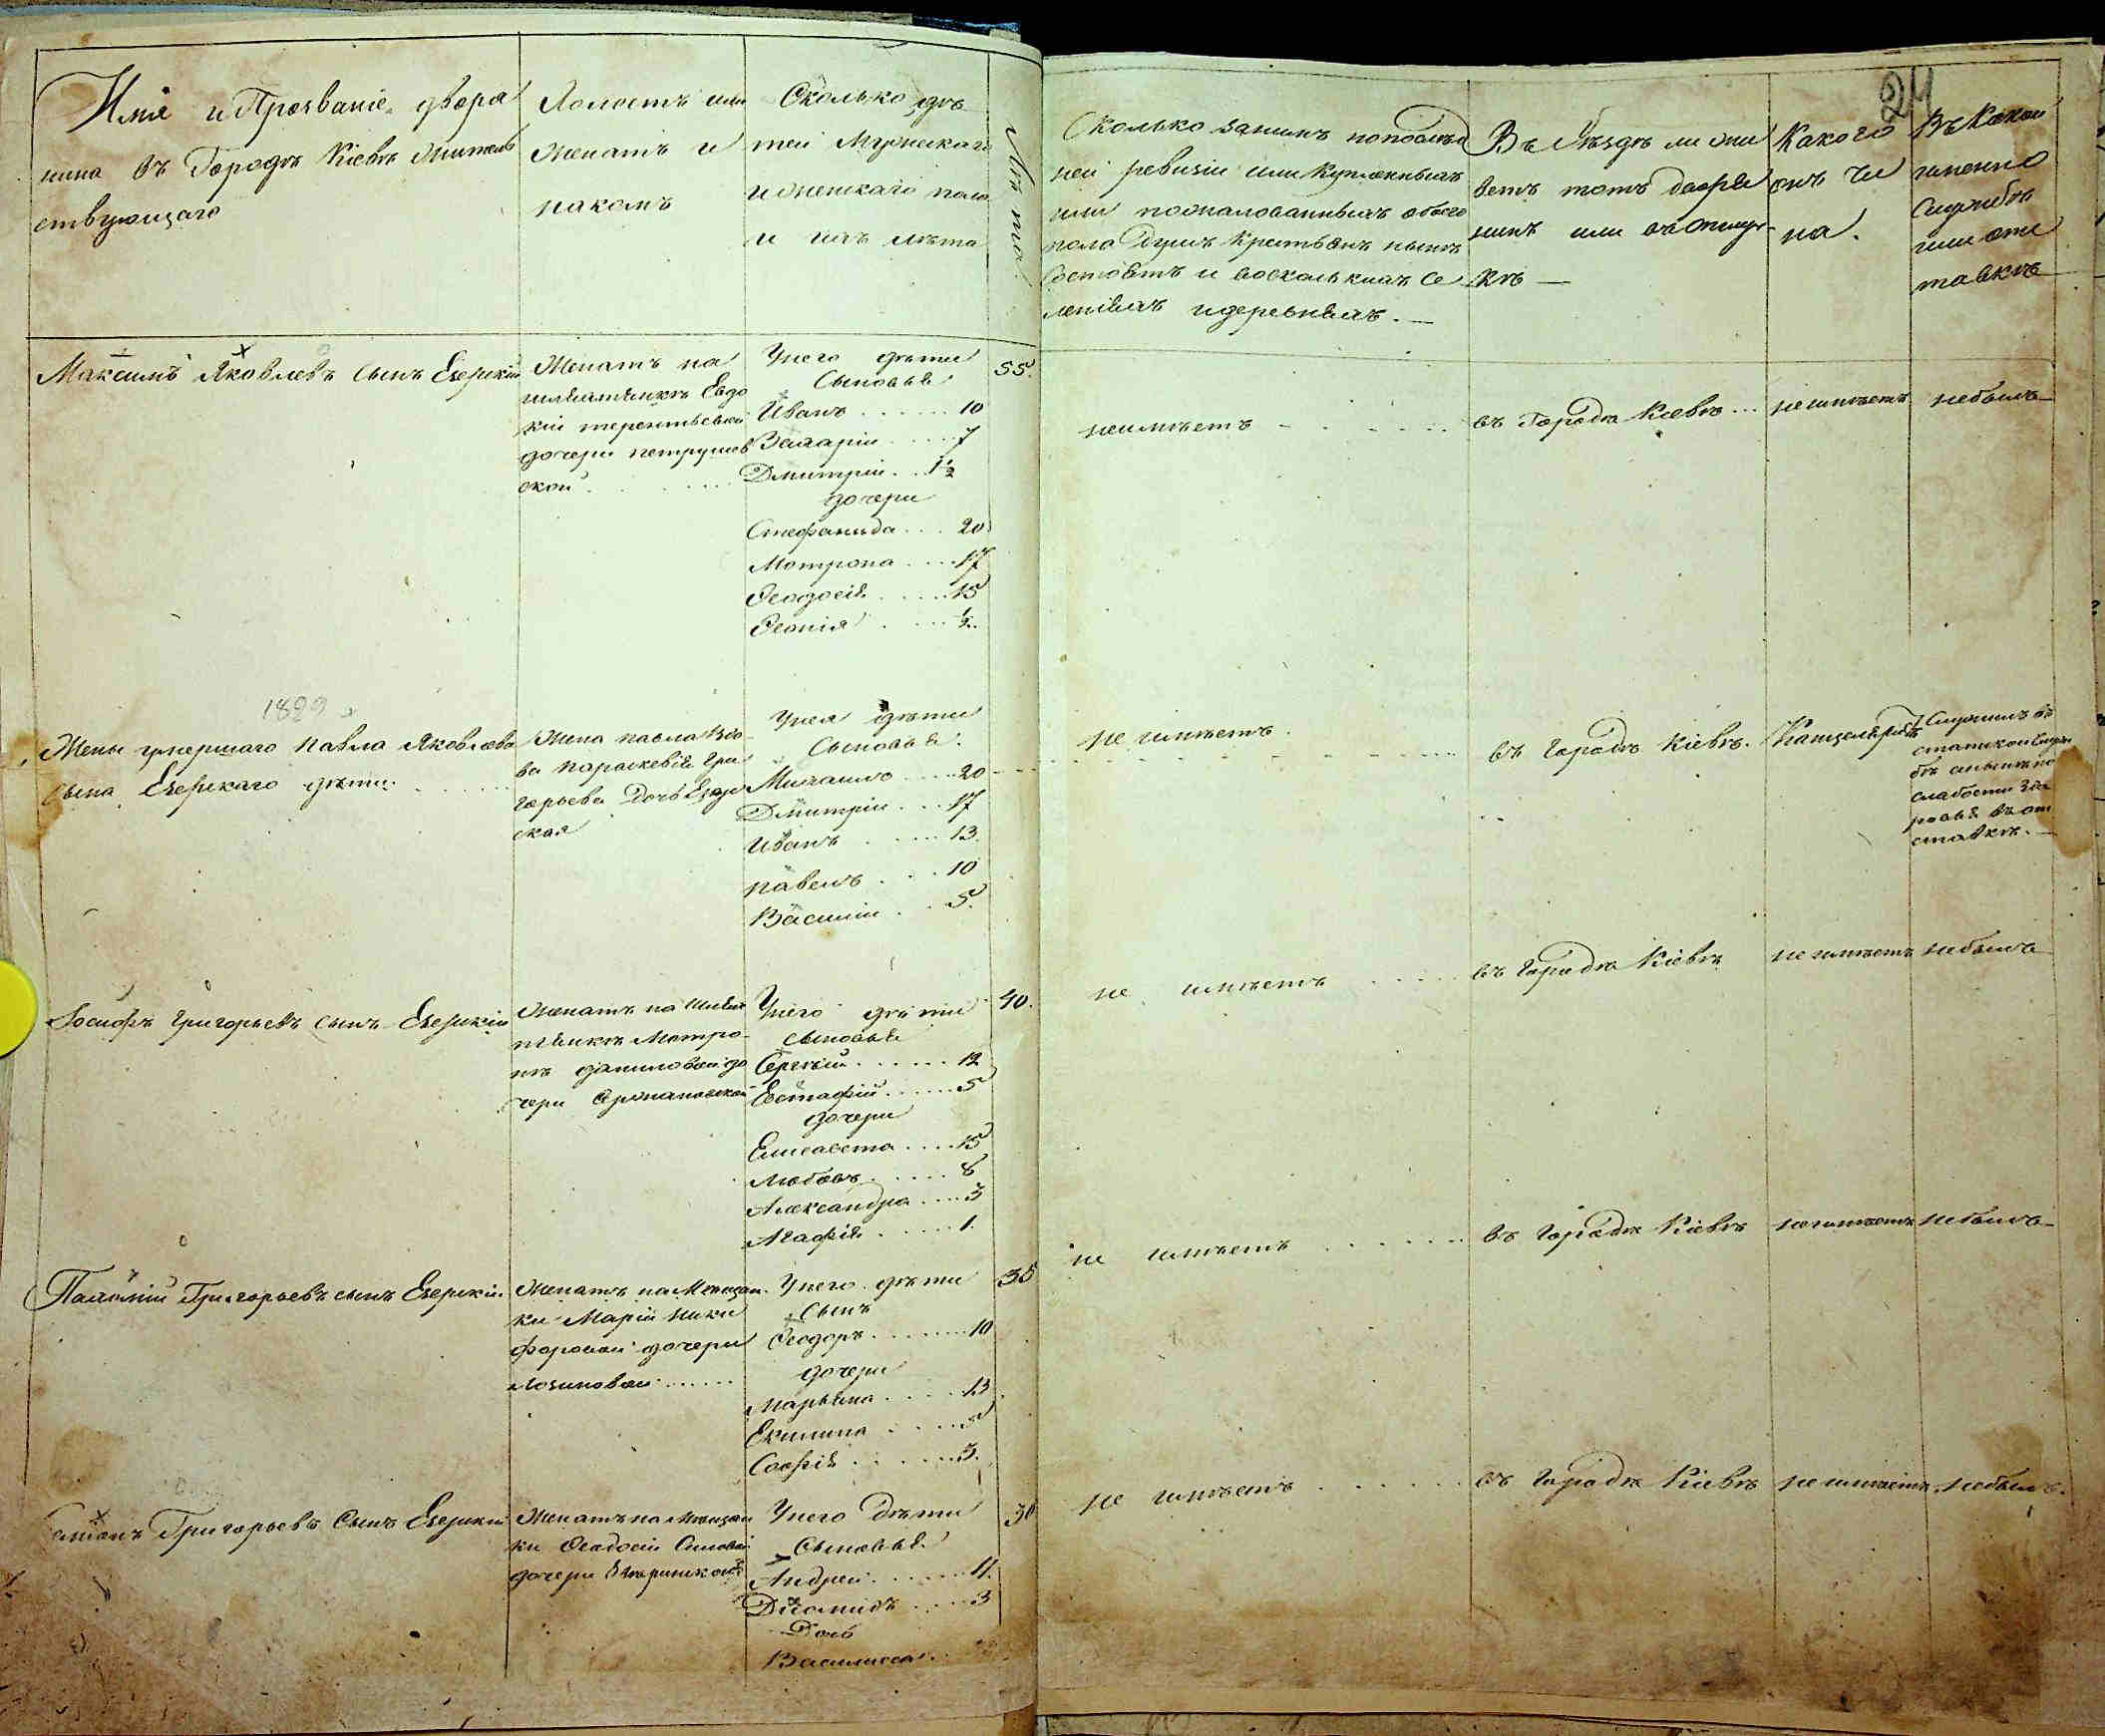 24
Имя и Прозваніе дворя
нина въ Городѣ Кіевѣ жител
ствующаго
Холостъ или
женатъ и
накомъ
Сколько дѣ
теи Мужескаго
и женскаго пола
и ихъ лѣта
Лѣта
Сколько занимъ попослѣд
ней ревизіи или купленныхъ
или пожалованныхъ обоего
пола Душъ крестьянъ нынѣ
состоитъ и восколькихъ се
леніяхъ идеревняхъ. —
Въ Уѣздѣ ли жи
ветъ тотъ дворя
нинъ или въотлуч-
кѣ —
Какого
онъ чи
на.
Въ Какои
именно
Службѣ
или отс
тавкѣ
Максимъ Яковлевъ Сынъ Езерскій
Женатъ на
шляхтянкѣ Евдо
кіи терентьевой
дочери петрушев
ской
Унего дѣти
Сыновья
Иванъ 10
Захаріи 7
Дмитріи 1½
дочери
Стефанида 20
Мотрона 17
Ѳеодосія 15
Ѳеонія ½
55.
неимѣетъ
въ Городѣ Кіевѣ
неимѣетъ
небылъ
1829
Жены умершаго павла Яковлева
Сына Езерскаго дѣти
Жена павла вдо
ва параскевія Гри
горьева Дочь Езер
ская
Унея дѣти
Сыновья.
Михаило 20
Дмитріи 17
Иванъ 13
павелъ 10
Василіи 5.
не имѣетъ.
въ городѣ Кіевѣ.
Канцеляристъ
Служилъ въ
статской служ
бѣ анынѣ по
слабости Здо
ровья въ от
ставкѣ. —
Іосифъ Григорьевъ Сынъ Езерскій
Женатъ на Шлях
тянкѣ Мотро
нѣ даниловой до
чери
Унего дѣти
сыновья
Сергѣй 12
Евстафій 5
дочери
Елисавета 15
Любовъ 8
Александра 3
Агафія 1.
40.
не имѣетъ
въ Городѣ Кіевѣ
не имѣетъ
небылъ
Григорьевъ сынъ Езерскіи
Женатъ на Мещан
ки Маріи Ники
форовой дочери
Логиновой
Унего дѣти
Сынъ
Ѳеодоръ 10
дочери
Марьяна 13
Екилина 5
Софія 3.
35
не имѣетъ
въ городѣ Кіевѣ
неимѣетъ
небылъ
Симонъ Григорьевъ Сынъ Езерскіи
Женатъ на Мещан
ки Ѳеодосіи
дочери
Унего Дѣти
Сыновья
Андреи 4.
Діомидъ 3
Дочь
Василисса
30
не имѣетъ
въ городѣ Кіевѣ
не имѣетъ
небылъ.